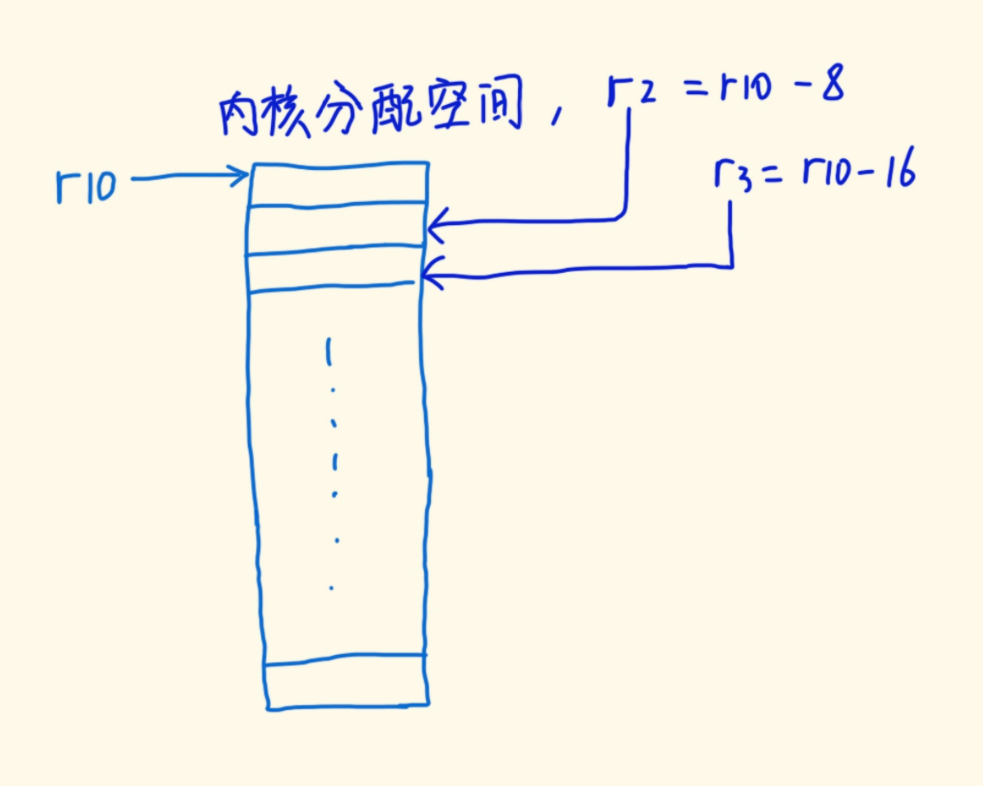 内核分配空间, r2 = r10 - 8
r3 = r10 - 16
r10